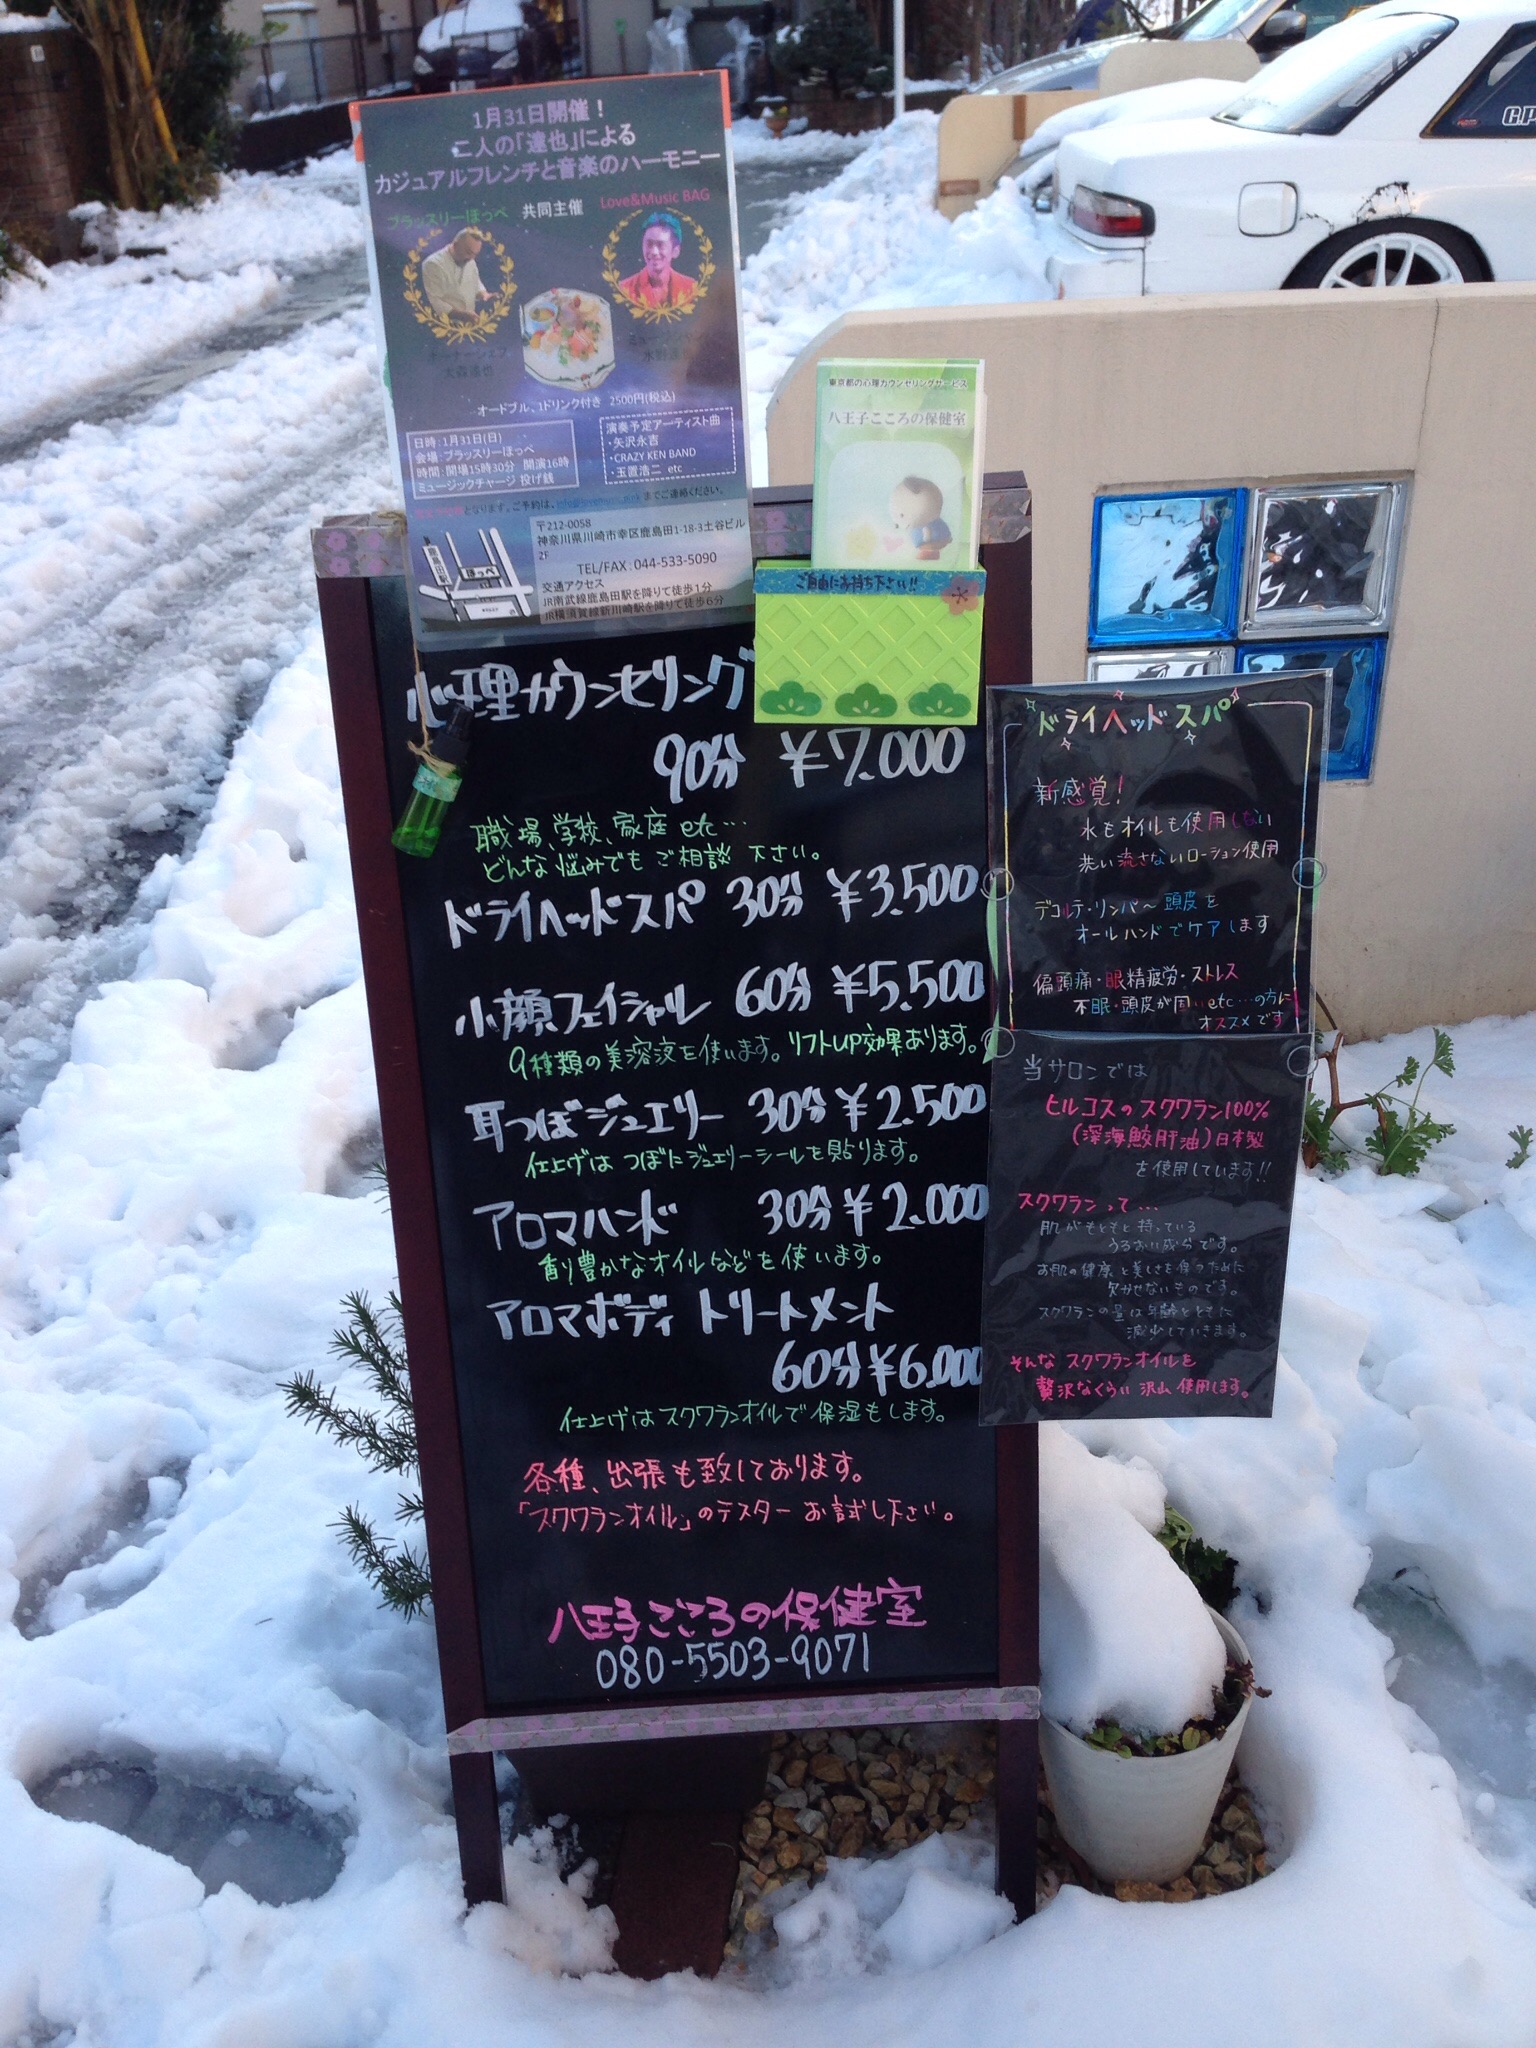 1月31日開催！
二人の「達也」による
カジュアルフレンチと音楽のハーモニー
ブラッスリーほっぺ 共同主催 Love&Music BAG
オーナーシェフ
ミュージシャン
オードブル、1ドリンク付き 2500円(税込)
日時：1月31日(日)
会場：ブラッスリーほっぺ
時間：開場15時30分 開演16時
ミュージックチャージ 投げ銭
演奏予定アーティスト曲
・矢沢永吉
・CRAZY KEN BAND
・玉置浩二 etc
となります。ご予約は、
までご連絡ください。
〒212-0058
神奈川県川崎市幸区鹿島田1-18-3土谷ビル
2F
TEL/FAX：044-533-5090
交通アクセス
JR南武線鹿島田駅を降りて徒歩1分
JR横須賀線新川崎駅を降りて徒歩6分
鹿島田駅
ほっぺ
東京都の心理カウンセリングサービス
八王子こころの保健室
ご自由にお持ち下さい!!
心理カウンセリング
90分 ¥7.000
職場、学校、家庭 etc…
どんな悩みでもご相談 下さい。
ドライヘッドスパ 30分 ¥3.500
小顔フェイシャル 60分 ¥5.500
9種類の美溶液を使います。リフトUP効果あります。
耳つぼジュエリー 30分 ¥2.500
仕上げは つぼにジュエリーシールを貼ります。
アロマハンド 30分 ¥2.000
香り豊かなオイルなどを使います。
アロマボディ トリートメント
60分 ¥6.000
仕上げはスクワランオイルで保湿もします。
各種、出張も致しております。
「スクワランオイル」のテスター お試し下さい。
八王子こころの保健室
080-5503-9071
ドライヘッドスパ
新感覚！
水もオイルも使用しない
洗い流さないローション使用
デコルテ・リンパ〜頭皮を
オールハンドでケアします
偏頭痛・眼精疲労・ストレス
不眠・頭皮が固…etc…の方に
オススメです
当サロンでは
ヒルコスのスクワラン100%
(深海鮫肝油)日本製
を使用しています!!
スクワランって…
肌がもともと持っている
うるおい成分です。
お肌の健康と美しさを保つために
欠かせないものです。
スクワランの量は年齢とともに
減少していきます。
そんな スクワランオイルを
贅沢なくらい 沢山 使用します。
C.P